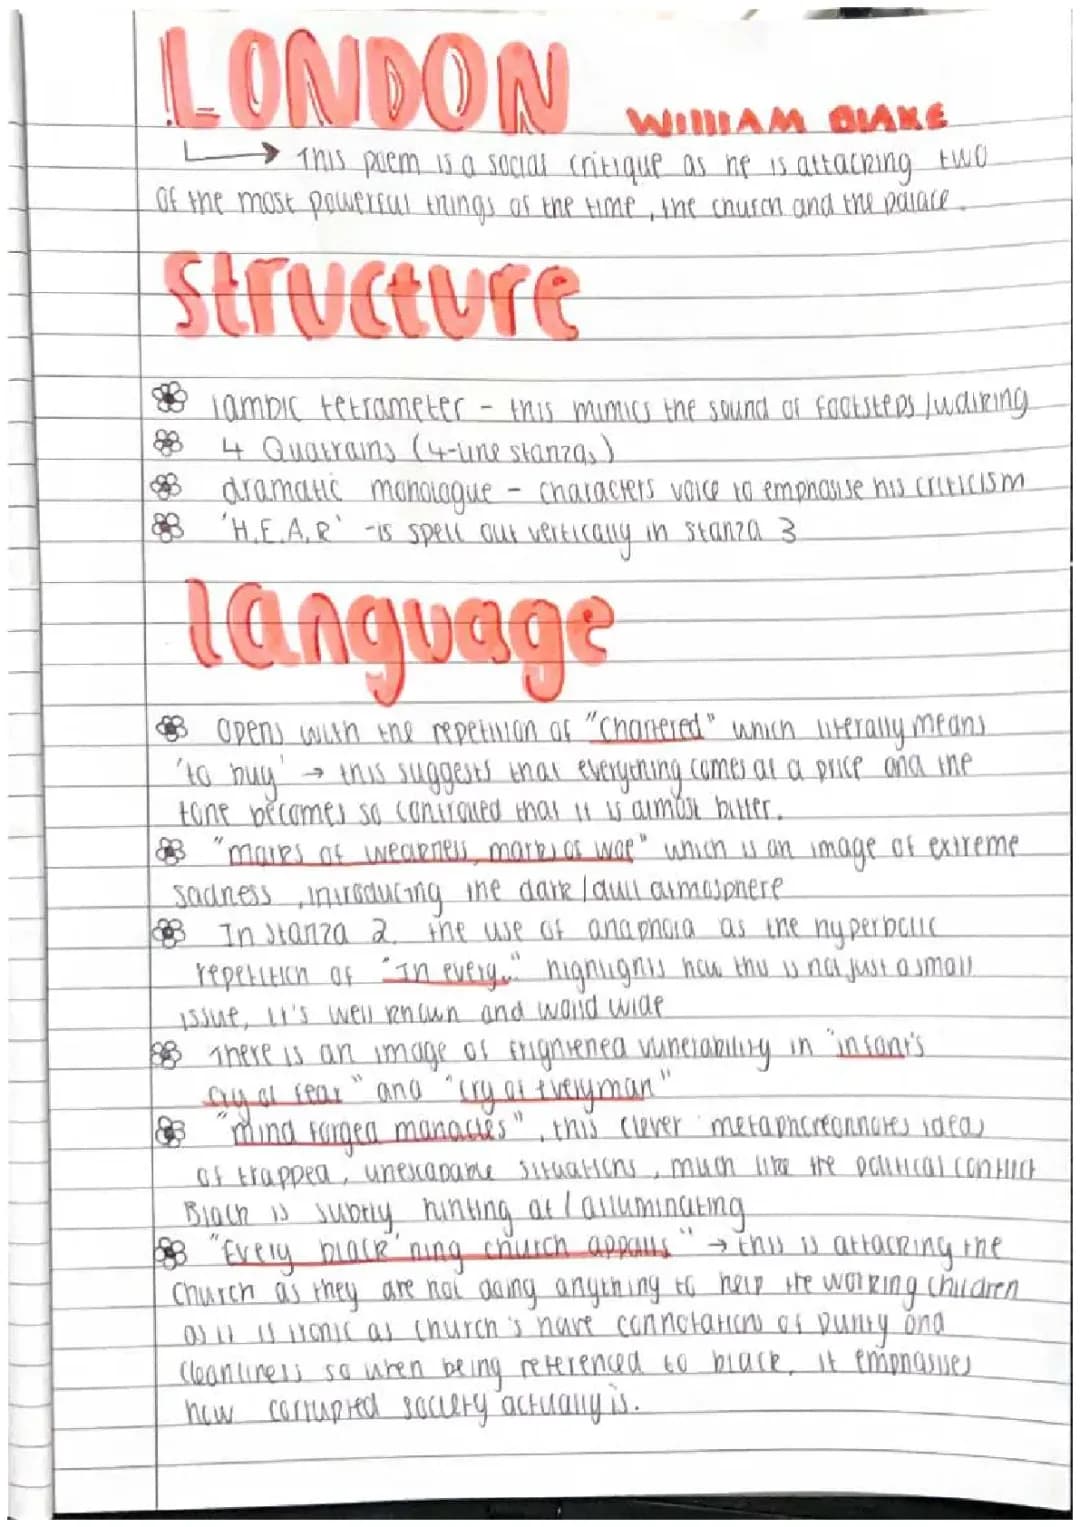 LONDON WILLIAM BLAKE
→ This poem is a social critique as he is attacking two
of the most powerful things of the time, the church and the palace.
Structure
Iambic tetrameter - this mimics the sound of footsteps/walking
4 Quatrains (4-line stanzas)
dramatic monologue - characters voice to emphasise his criticism
'H.E.A.R' - is spell out vertically in stanza 3
language
Opens with the repetition of "Chartered" which literally means
'to buy' → this suggests that everything comes at a price and the
tone becomes so controlled that it is almost bitter.
"marks of weakness, marks of woe" which is an image of extreme
sadness, introducing the dark/dull atmosphere
In stanza 2, the use of anaphora as the hyperbolic
repetition of "In every.." highlights how this is not just a small
issue, it's well known and world wide
There is an image of frightened vunerability in "infant's
cry of fear" and "cry of everyman"
"mind forged manacles", this clever metaphor connotes ideas
of trapped, unescapable situations, much like the political conflict
Blach is subtly hinting at / alluminating
"Every black'ning church appalls" → this is attacking the
Church as they are not doing anything to help the working children
as it is ironic as church's have connotations of purity and
cleanliness so when being referenced to black, it emphasises
how corrupted society actually is.